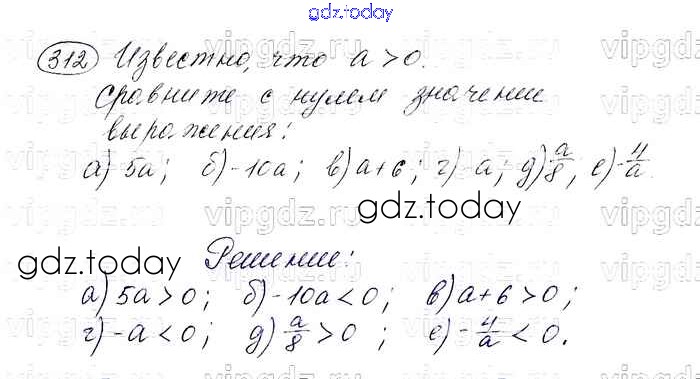 gdz.today
312 Известно, что a > 0.
Сравните с нулем значение
выражения:
а) 5a; б) -10a; в) a+6; г) -a; д) a/8; е) -4/a.
gdz.today
Решение:
gdz.today
а) 5a > 0; б) -10a < 0; в) a+6 > 0;
г) -a < 0; д) a/8 > 0; е) -4/a < 0.